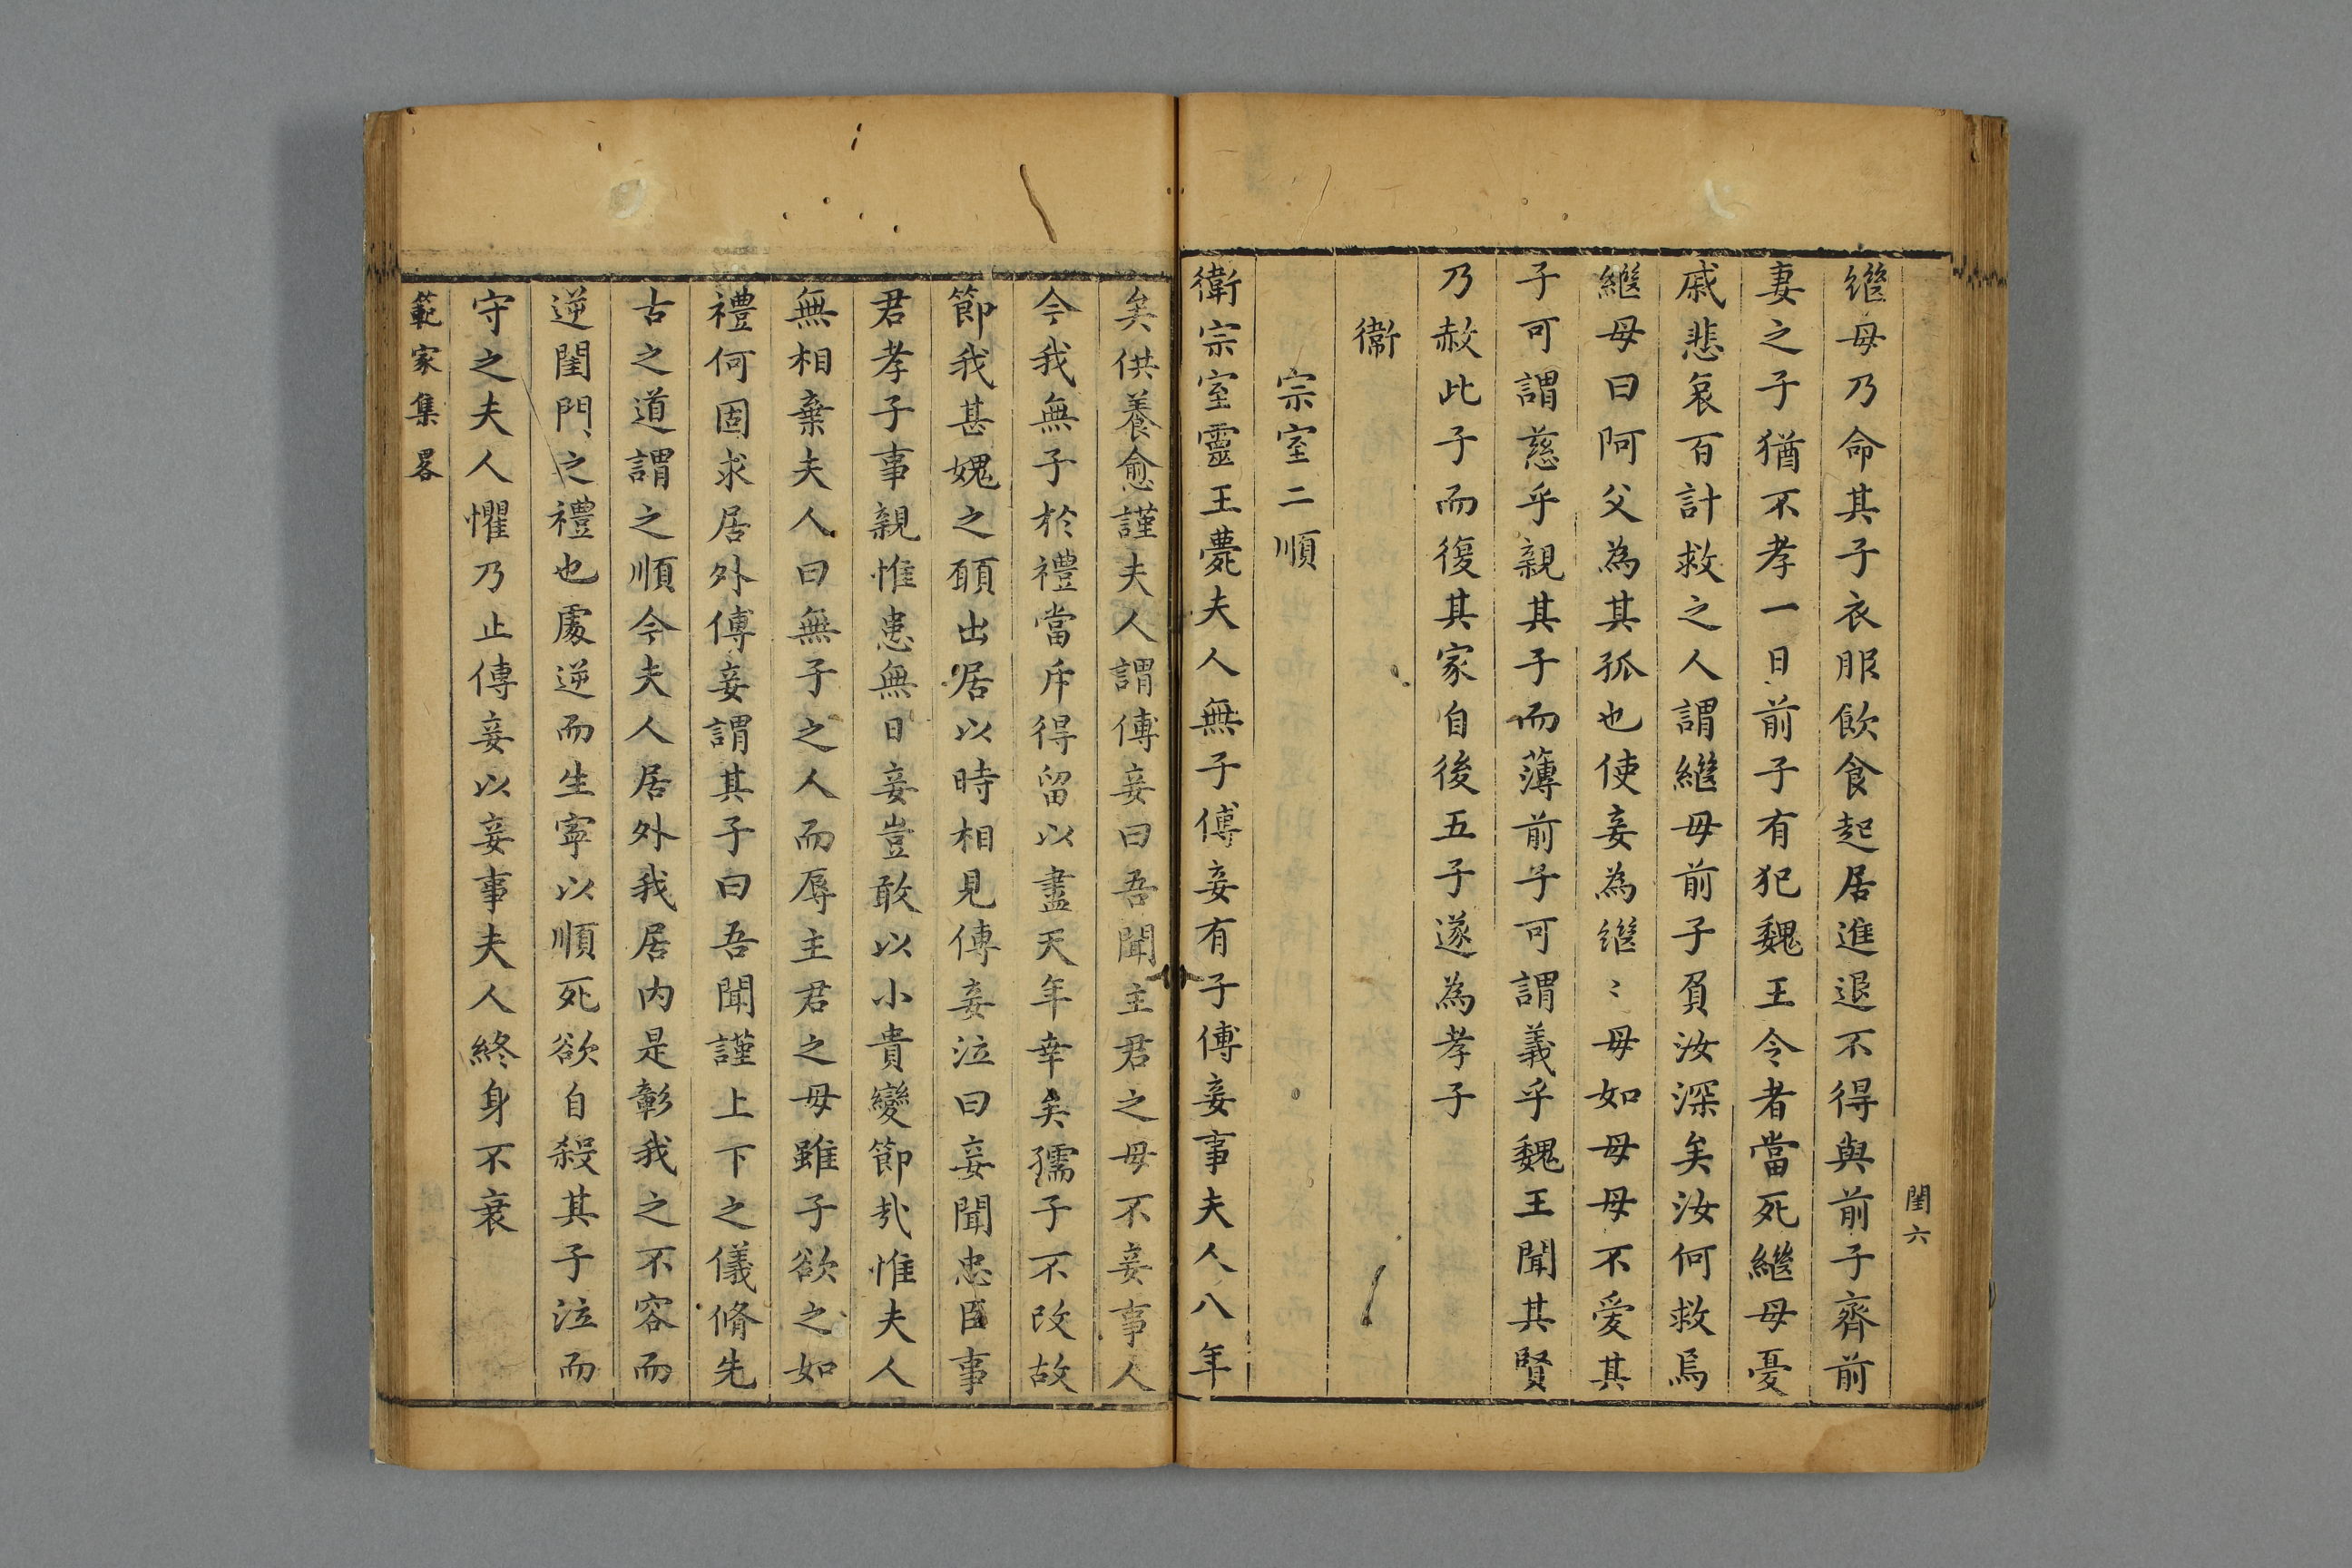 閨六
繼母乃命其子衣服飲食起居進退不得與前子齊前
妻之子猶不孝一日前子有犯魏王令者當死繼母憂
戚悲哀百計救之人謂繼母前子負汝深矣汝何救焉
繼母曰阿父為其孤也使妾為繼〻母如母母不愛其
子可謂慈乎親其子而薄前子可謂義乎魏王聞其賢
乃赦此子而復其家自後五子遂為孝子
衞
宗室二順
衛宗室靈王薨夫人無子傅妾有子傅妾事夫人八年
矣供養愈謹夫人謂傅妾曰吾聞主君之母不妾事人
今我無子於禮當斥得留以盡天年幸矣孺子不改故
節我甚媿之願出居以時相見傅妾泣曰妾聞忠臣事
君孝子事親惟患無日妾豈敢以小貴變節㢤惟夫人
無相棄夫人曰無子之人而辱主君之母雖子欲之如
禮何固求居外傅妾謂其子曰吾聞謹上下之儀脩先
古之道謂之順今夫人居外我居内是彰我之不容而
逆閨門之禮也處逆而生寧以順死欲自殺其子泣而
守之夫人懼乃止傅妾以妾事夫人終身不衰
範家集畧